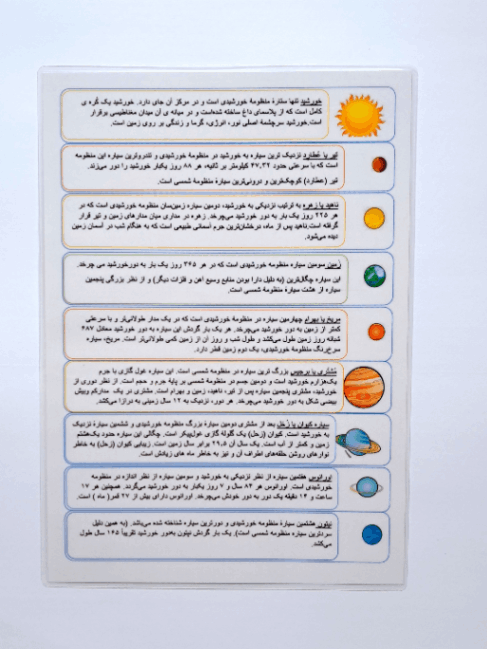 خورشید تنها ستارهٔ منظومهٔ خورشیدی است و در مرکز آن جای دارد. خورشید یک کُره ی
کامل است که از پلاسمای داغ ساخته شده‌است و در میانه ی آن میدان مغناطیسی برقرار
است.خورشید سرچشمهٔ اصلی نور، انرژی، گرما و زندگی بر روی زمین است.
تیر یا عُطارِد نزدیک ترین سیاره به خورشید در منظومهٔ خورشیدی و تندروترین سیاره این منظومه
است که با سرعتی حدود ۴۷٫۳۲ کیلومتر بر ثانیه، هر ۸۸ روز یکبار خورشید را دور می‌زند.
تیر (عطارد) کوچک‌ترین و درونی‌ترین سیارهٔ منظومهٔ شمسی است.
ناهید یا زهره به ترتیب نزدیکی به خورشید، دومین سیاره زمین‌سان منظومهٔ خورشیدی است که در
هر ۲۲۵ روز یک بار به دور خورشید می‌چرخد. زهره در مداری میان مدارهای زمین و تیر قرار
گرفته است.ناهید پس از ماه، درخشان‌ترین جرم آسمانی طبیعی است که به هنگام شب در آسمان زمین
دیده می‌شود.
زمین سومین سیاره منظومه خورشیدی است که در هر ۳۶۵ روز یک بار به دورخورشید می چرخد.
این سیاره چگال‌ترین (به دلیل دارا بودن منابع وسیع آهن و فلزات دیگر) و از نظر بزرگی پنجمین
سیاره از هشت سیارهٔ منظومهٔ شمسی است.
مریخ یا بهرام چهارمین سیاره در منظومهٔ خورشیدی است که در یک مدار طولانی‌تر و با سرعتی
کمتر از زمین به دور خورشید می‌چرخد. هر یک بار گردش این سیاره به دور خورشید معادل ۶۸۷
شبانه روز زمین طول می‌کشد و طول شب و روز آن از زمین کمی طولانی‌تر است. مریخ، سیاره
سرخ‌رنگ منظومهٔ خورشیدی، یک دوم زمین قطر دارد.
مُشتَری یا برجیس بزرگ ترین سیاره در منظومهٔ شمسی است. این سیاره غول گازی با جرم
یک‌هزارم خورشید است و دومین جسم در منظومهٔ شمسی بر پایهٔ جرم و حجم است. از نظر دوری از
خورشید، مشتری پنجمین سیاره پس از تیر، ناهید، زمین و بهرام است. مشتری در یک مدارکم وبیش
بیضی شکل به دور خورشید می‌چرخد. هر دور، نزدیک به ۱۲ سال زمینی به درازا می‌کشد.
سیاره کیوان یا زُحَل بعد از مشتری دومین سیارهٔ بزرگ منظومه خورشیدی و ششمین سیارهٔ نزدیک
به خورشید است. کیوان (زحل) یک گلوله گازی غول‌پیکر است. چگالی این سیاره حدود یک‌هشتم
زمین و کمتر از آب است. یک سال آن ۲۹٫۵ برابر سال زمین است. زیبایی کیوان (زحل) به خاطر
نوارهای روشن حلقه‌های اطراف آن و نیز به خاطر ماه های زیادش است.
اورانوس هفتمین سیاره از نظر نزدیکی به خورشید و سومین سیاره از نظر اندازه در منظومه
خورشیدی است. اورانوس هر ۸۴ سال و ۷ روز یکبار به دور خورشید می‌گردد. همچنین هر ۱۷
ساعت و ۱۴ دقیقه یک دور به دور خودش می‌چرخد. اورانوس دارای بیش از ۲۷ قمر( ماه ) است.
نپتون هشتمین سیارهٔ منظومه خورشیدی و دورترین سیاره شناخته شده می‌باشد. (به همین دلیل
سردترین سیاره منظومه شمسی است). یک بار گردش نپتون به‌دور خورشید تقریباً ۱۶۵ سال طول
می‌کشد.